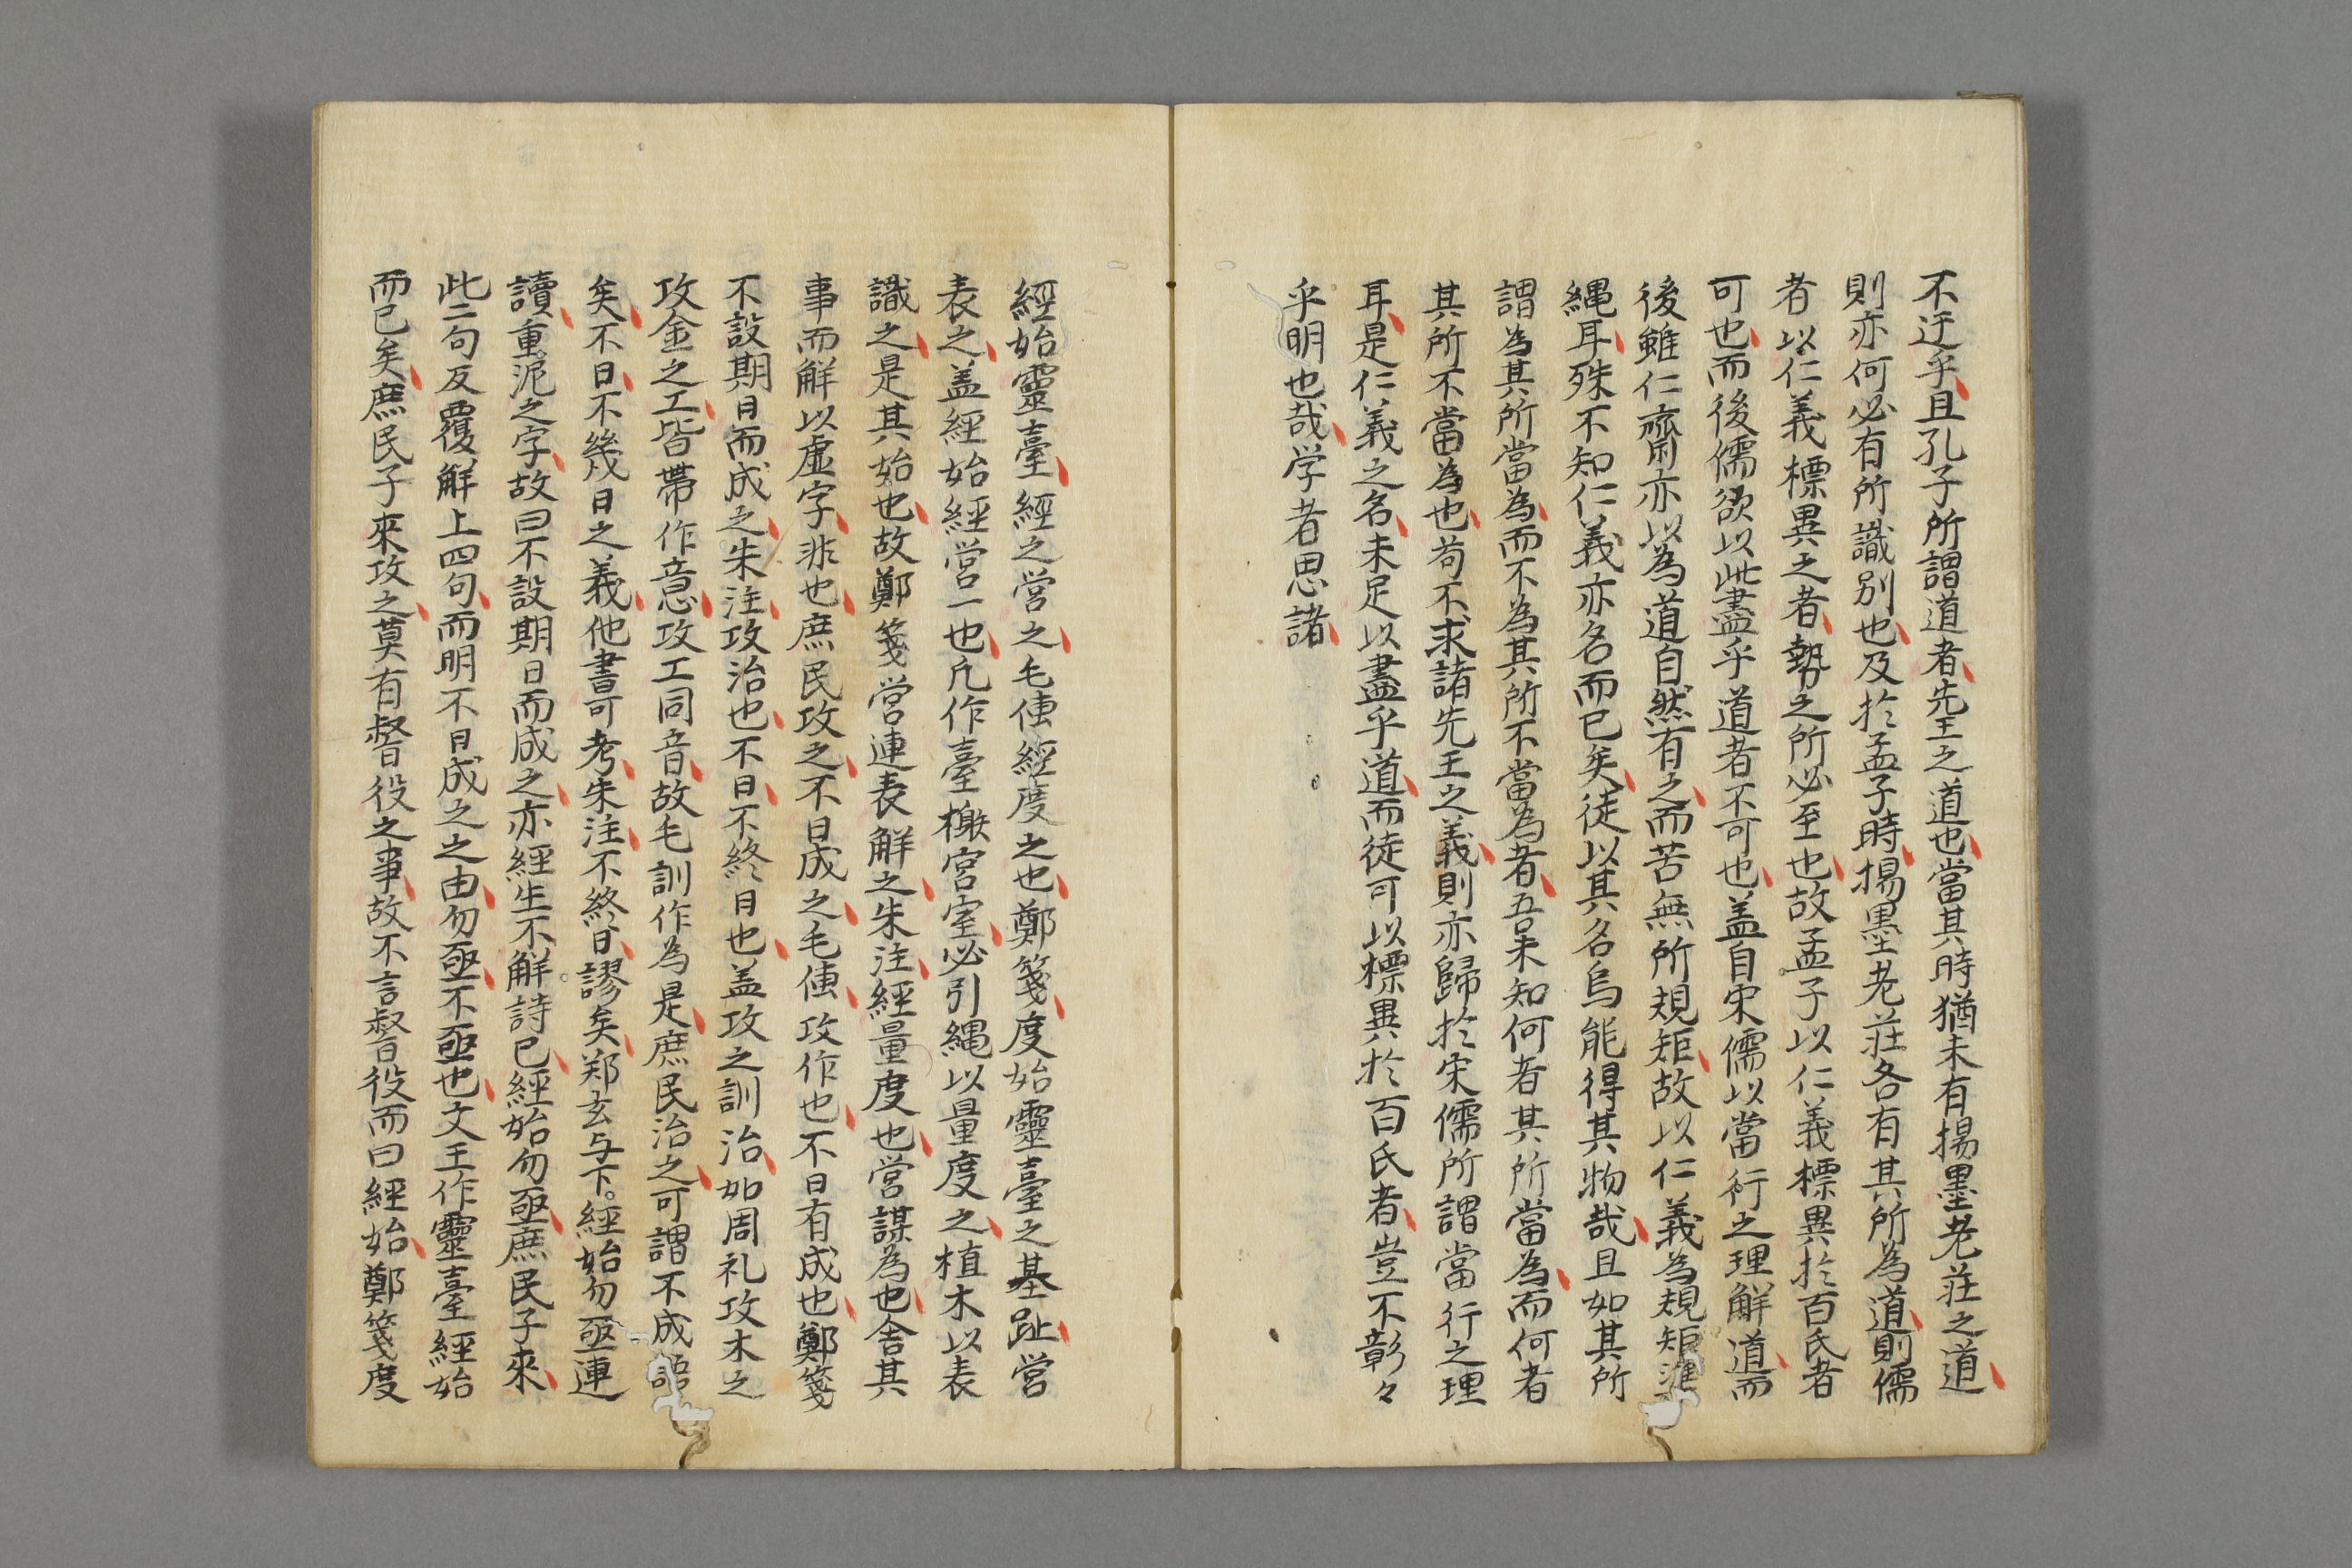 不迂乎且孔子所謂道者先王之道也當其時猶未有揚墨老莊之道
則亦何必有所識別也及於孟子時揚墨老莊各有其所為道則儒
者以仁義標異之者勢之所必至也故孟子以仁義標異於百氏者
可也而後儒欲以此盡乎道者不可也盖自宋儒以當行之理解道而
後雖仁齋亦以為道自然有之而苦無所規矩故以仁義為規矩準
繩耳殊不知仁義亦名而已矣徒以其名烏能得其物哉且如其所
謂為其所當為而不為其所不當為者吾未知何者其所當為而何者
其所不當為也苟不求諸先王之義則亦歸於宋儒所謂當行之理
耳是仁義之名未足以盡乎道而徒可以標異於百氏者豈不彰々
乎明也哉学者思諸
經始靈臺經之営之毛傳經度之也鄭箋度始靈臺之基趾営
表之盖經始經営一也凢作臺榭宮室必引繩以量度之植木以表
識之是其始也故鄭箋営連表解之朱注經量度也営謀為也舎其
事而解以虚字非也庶民攻之不日成之毛傳攻作也不日有成也鄭箋
不設期日而成之朱注攻治也不日不終日也盖攻之訓治如周礼攻木之
攻金之工皆帶作意攻工同音故毛訓作為是庶民治之可謂不成語
矣不日不幾日之義他書可考朱注不終日謬矣郑玄与下。經始勿亟連
讀重泥之字故曰不設期日而成之亦經生不解詩已經始勿亟庶民子來
此二句反覆解上四句而明不日成之之由勿亟不亟也文王作靈臺經始
而已矣庶民子來攻之莫有督役之事故不言督役而曰經始鄭箋度